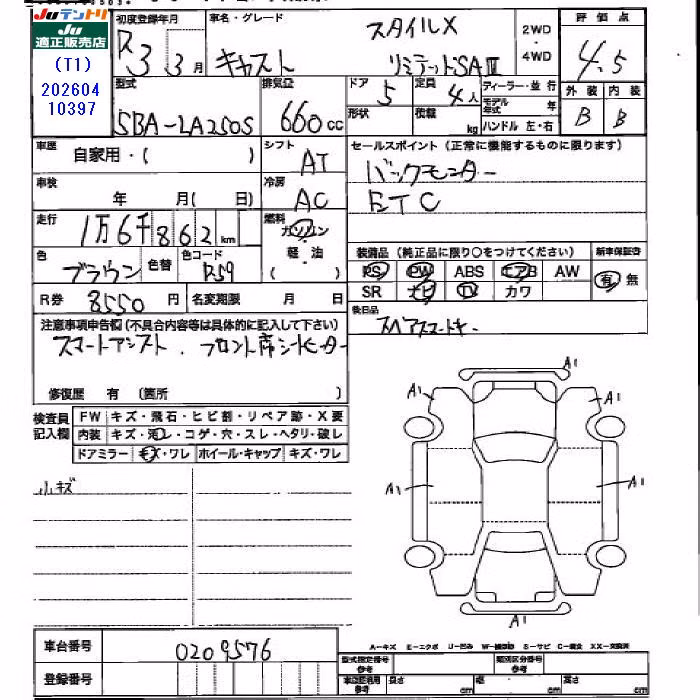 JUテントリ
JU
適正販売店
(T1)
202604
10397
初度登録年月
R 3 3月
車名・グレード
キャスト
スタイルX
リミテッドSAⅢ
2WD
・
4WD
評価点
4.5
外装 内装
B B
型式
5BA-LA250S
排気量
660cc
ドア
5
定員
4人
形状
積載
kg
ディーラー・並行
モデル年式 年
ハンドル 左・右
車歴
自家用・( )
シフト
AT
車検
年 月( 日)
冷房
AC
走行
1万6千862km
燃料
ガソリン
・
軽・油
( )
色
ブラウン
色替
色コード
R59
R券 8550円
名変期限 月 日
セールスポイント(正常に機能するものに限ります)
バックモニター
ETC
装備品(純正品に限り○をつけてください)
新車保証書
PS PW ABS エアB AW
有・無
SR ナビ TV カワ
後日品
スペアスマートキー
注意事項申告欄(不具合内容等は具体的に記入して下さい)
スマートアシスト、フロント席シートヒーター
修復歴 有 (箇所 )
検査員
記入欄
FW キズ・飛石・ヒビ割・リペア跡・X要
内装 キズ・汚レ・コゲ・穴・スレ・ヘタリ・破レ
ドアミラー キズ・ワレ ホイール・キャップ キズ・ワレ
小キズ
A1
A1
A1
A1
A1
A1
A-キズ E-エクボ U-凹み S-サビ C-腐食 XX-交換済
車台番号
0209576
登録番号
型式指定番号
参考
類別区分番号
参考
車検証明用
参考
長さ cm
幅 cm
高さ cm